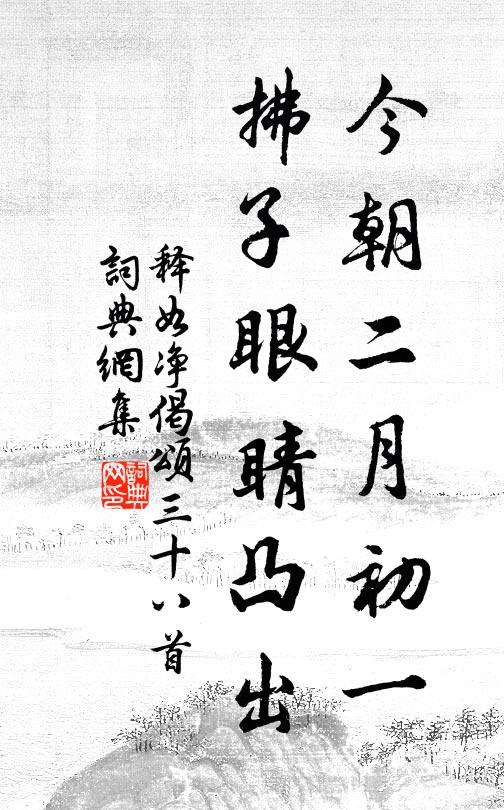 今朝二月初一
拂子眼睛凸出
释如净偈頌三十八首
詞典網集
詞典網印